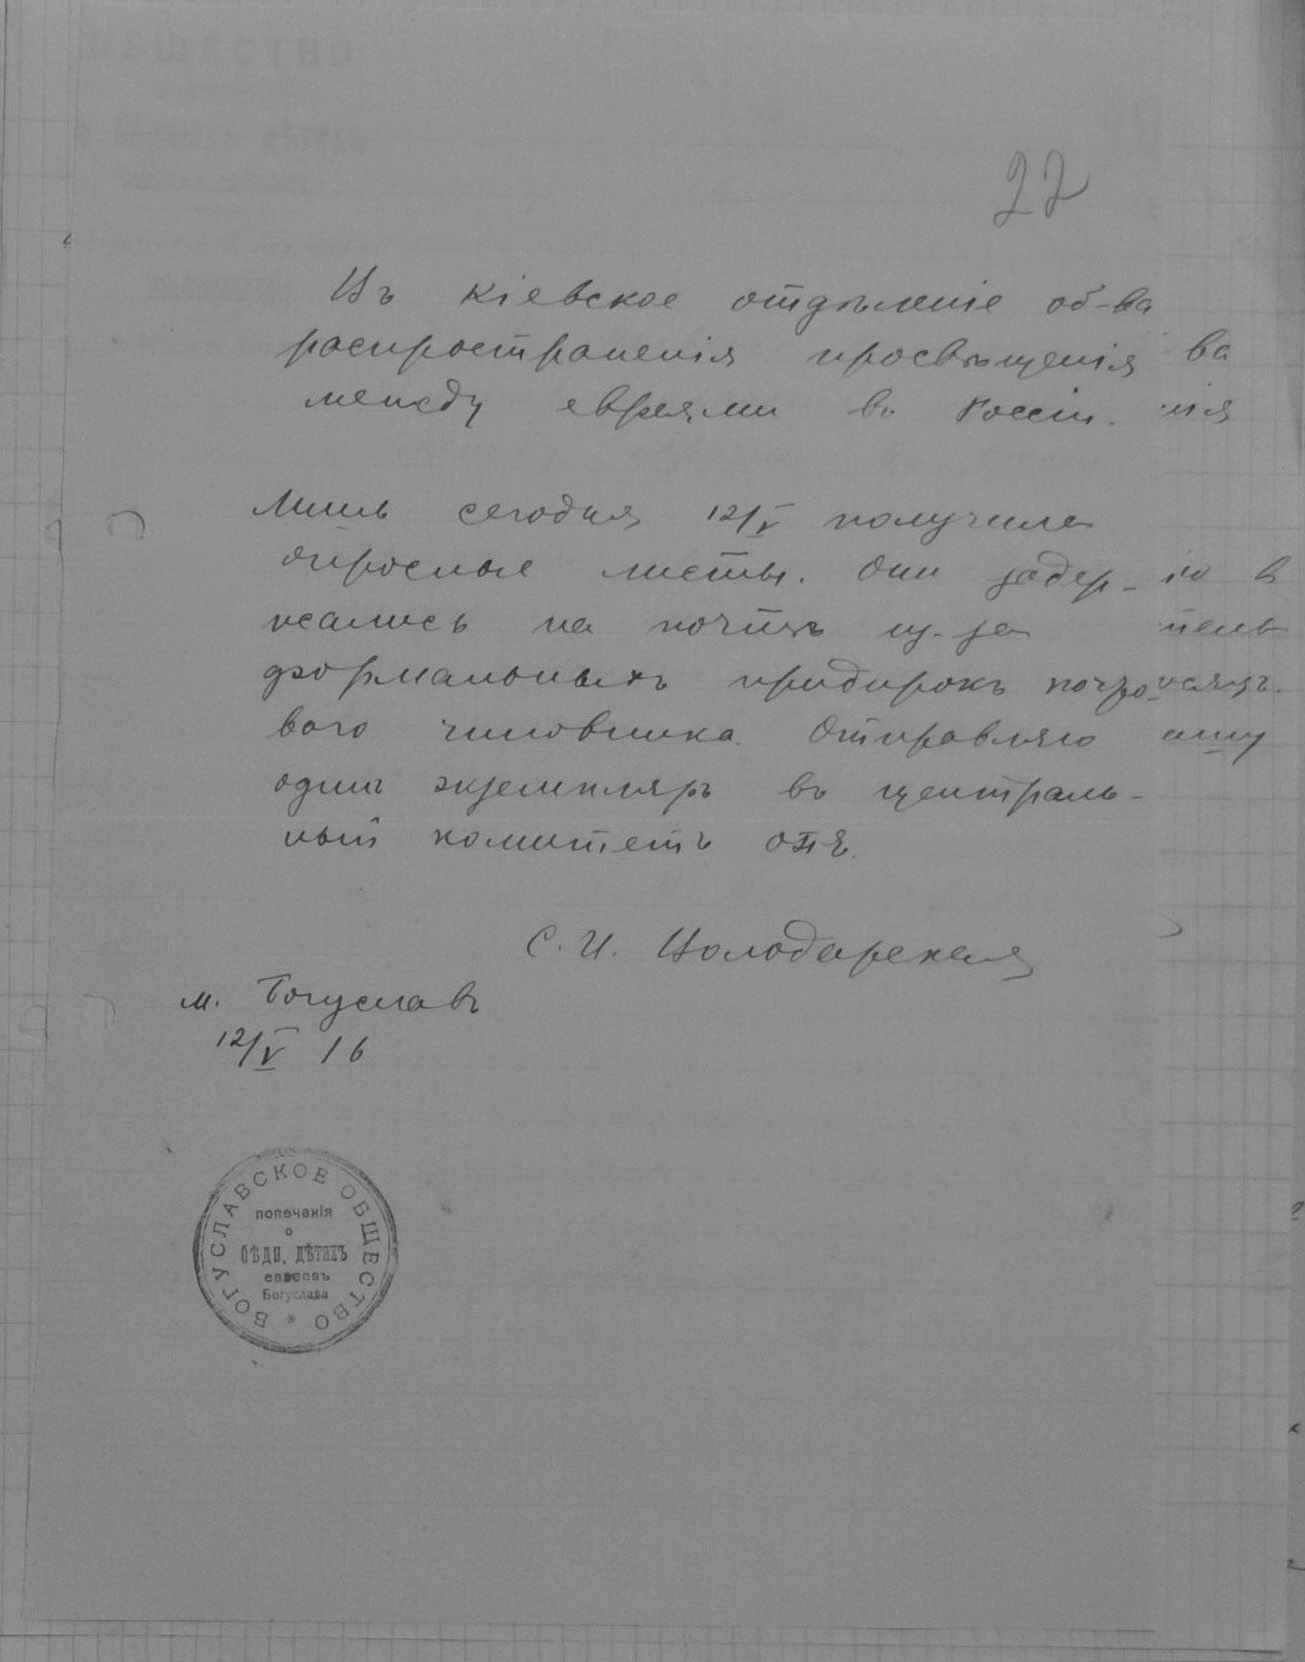 22
Въ Кіевское отдѣленіе об-ва
распространенія просвѣщенія
между евреями въ Россіи.
ва
нія
Лишь сегодня 12/V получила
опросные листы. Они задер-
жались на почтѣ из-за
формальныхъ придирокъ почто-
ваго чиновника. Отправляю
одинъ экземпляръ въ централь-
ный комитетъ ОПЕ.
С. И. Володарская
м. Богуславъ
12/V 16
БОГУСЛАВСКОЕ ОБЩЕСТВО *
попеченія
о
бѣдн. дѣтяхъ
евреевъ
Богуслава